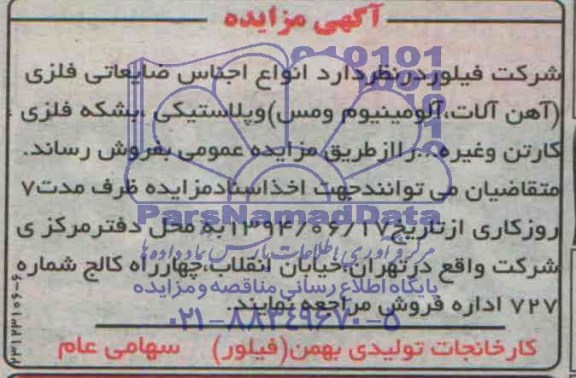 آگهی مزایده
شرکت فیلوردرنظردارد انواع اجناس ضایعاتی فلزی
(آهن آلات،آلومینیوم ومس)وپلاستیکی ،بشکه فلزی ،
کارتن وغیره...رااز طریق مزایده عمومی بفروش رساند.
متقاضیان می توانندجهت اخذاسنادمزایده ظرف مدت۷
روزکاری ازتاریخ۱۳۹۴/۰۶/۱۷به محل دفترمرکزی
شرکت واقع درتهران،خیابان انقلاب،چهارراه کالج شماره
۷۲۷ اداره فروش مراجعه نمایند.
کارخانجات تولیدی بهمن(فیلور) سهامی عام
ParsNamadData
مرکز فرآوری اطلاعات پارس نماد داده ها
پایگاه اطلاع رسانی مناقصه و مزایده
۰۲۱-۸۸۳۴۹۶۷۰-۵